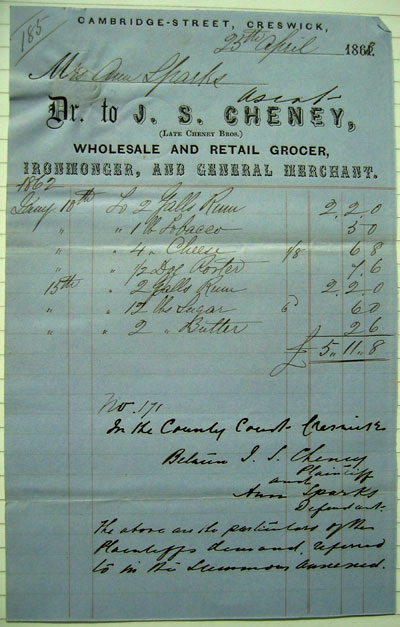 185
CAMBRIDGE-STREET, CRESWICK,
25th April 1863
Mrs Ann Sparks
Ascot
Dr. to J. S. CHENEY,
(LATE CHENEY BROS.)
WHOLESALE AND RETAIL GROCER,
IRONMONGER, AND GENERAL MERCHANT.
1862
Jany 10th To 2 Galls Rum 2,2,0
" " 1 lb Tobacco 5 0
" " 4 " Cheese 1/8 6 8
" " 1/2 Doz Porter 7.6
15th " 2 Galls Rum 2,2,0
" " 12 lbs Sugar 6 6 0
" " 2 " Butter 2 6
£ 5,,11,,8
No. 171
In the County Court Creswick
Between J. S. Cheney
Plaintiff
and
Ann Sparks
Defendant.
The above are the particulars of the
Plaintiffs demand, referred
to in the Summons annexed.